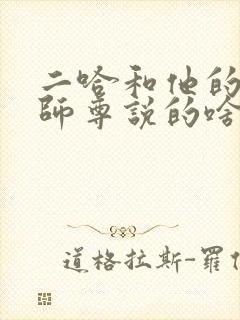 二哈和他的
師尊説的啥
道格拉斯-羅